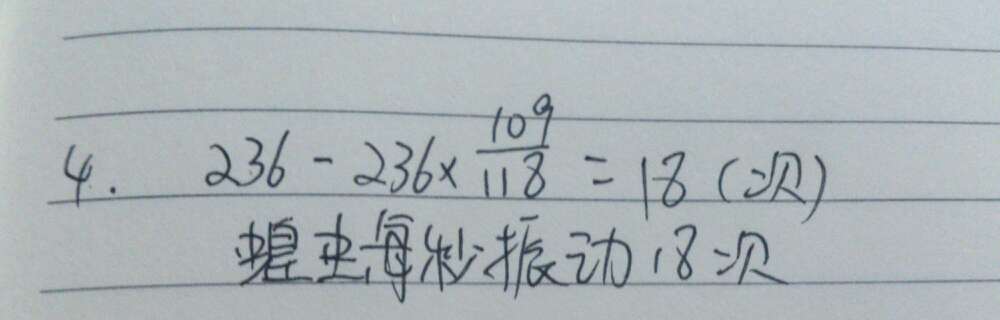 4. 236-236×109/118=18(次)
蝗虫每秒振动18次